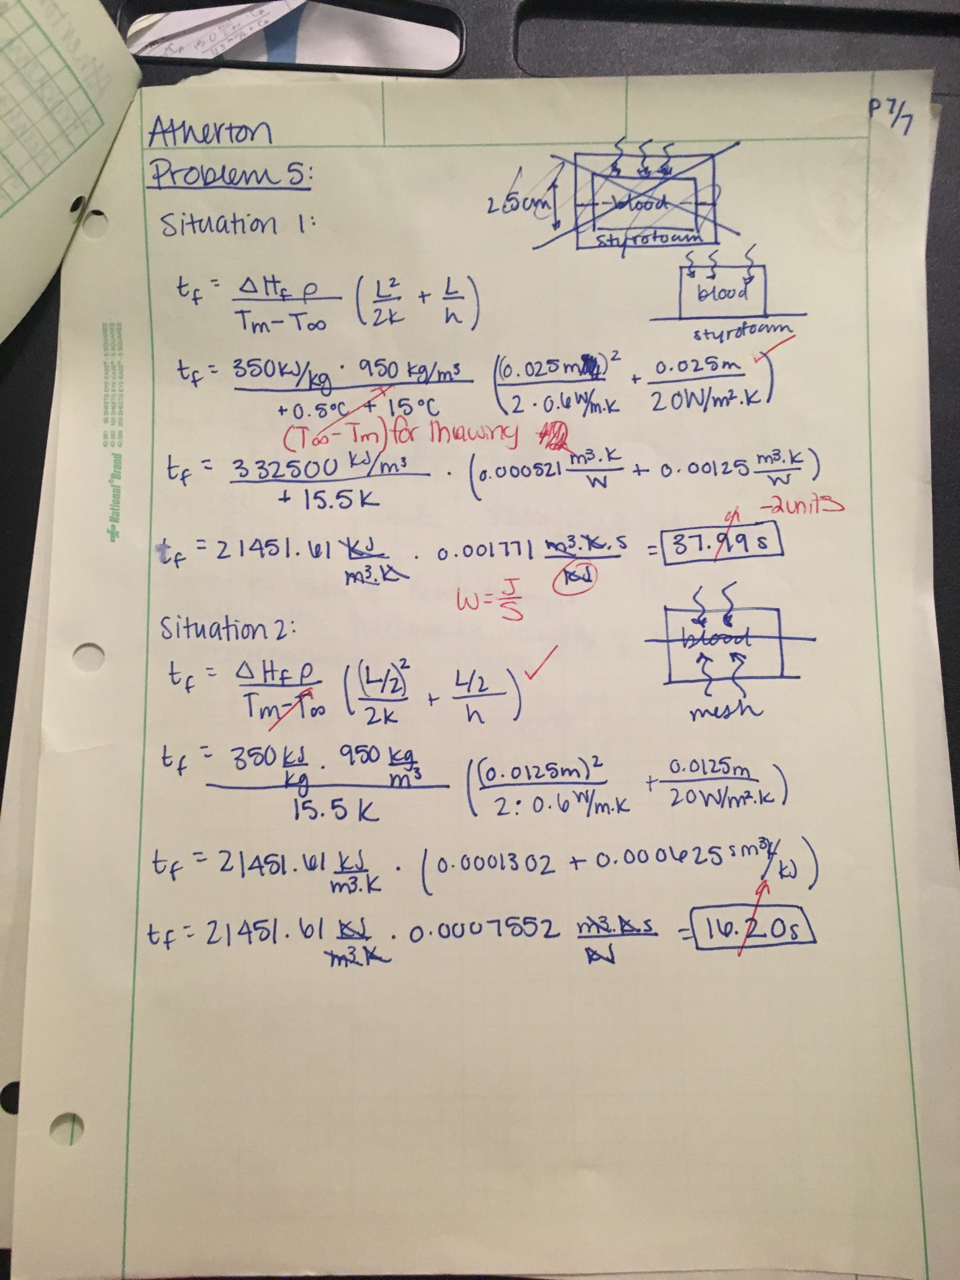 P 7/7
Atherton
Problem 5:
Situation 1:
2.5cm
blood
styrofoam
blood
styrofoam
tf = ΔHf ρ / Tm - T∞ (L²/2k + L/h)
tf = 350 kJ/kg · 950 kg/m³ / +0.5°C + 15°C ((0.025m)² / 2 · 0.6 W/m·K + 0.025m / 20 W/m²·K)
(T∞ - Tm) for thawing
tf = 332500 kJ/m³ / + 15.5 K · (0.000521 m³·K/W + 0.00125 m³·K/W)
-2 units
tf = 21451.61 kJ/m³·K · 0.001771 m³·K·s/kJ = 37.99 s
W = J/S
Situation 2:
blood
mesh
tf = ΔHf ρ / Tm - T∞ ((L/2)²/2k + L/2/h)
tf = 350 kJ/kg · 950 kg/m³ / 15.5 K ((0.0125m)² / 2 · 0.6 W/m·K + 0.0125m / 20 W/m²·K)
tf = 21451.61 kJ/m³·K · (0.0001302 + 0.000625 sm³K/kJ)
tf = 21451.61 kJ/m³·K · 0.0007552 m³·K·s/kJ = 16.20s
National® Brand